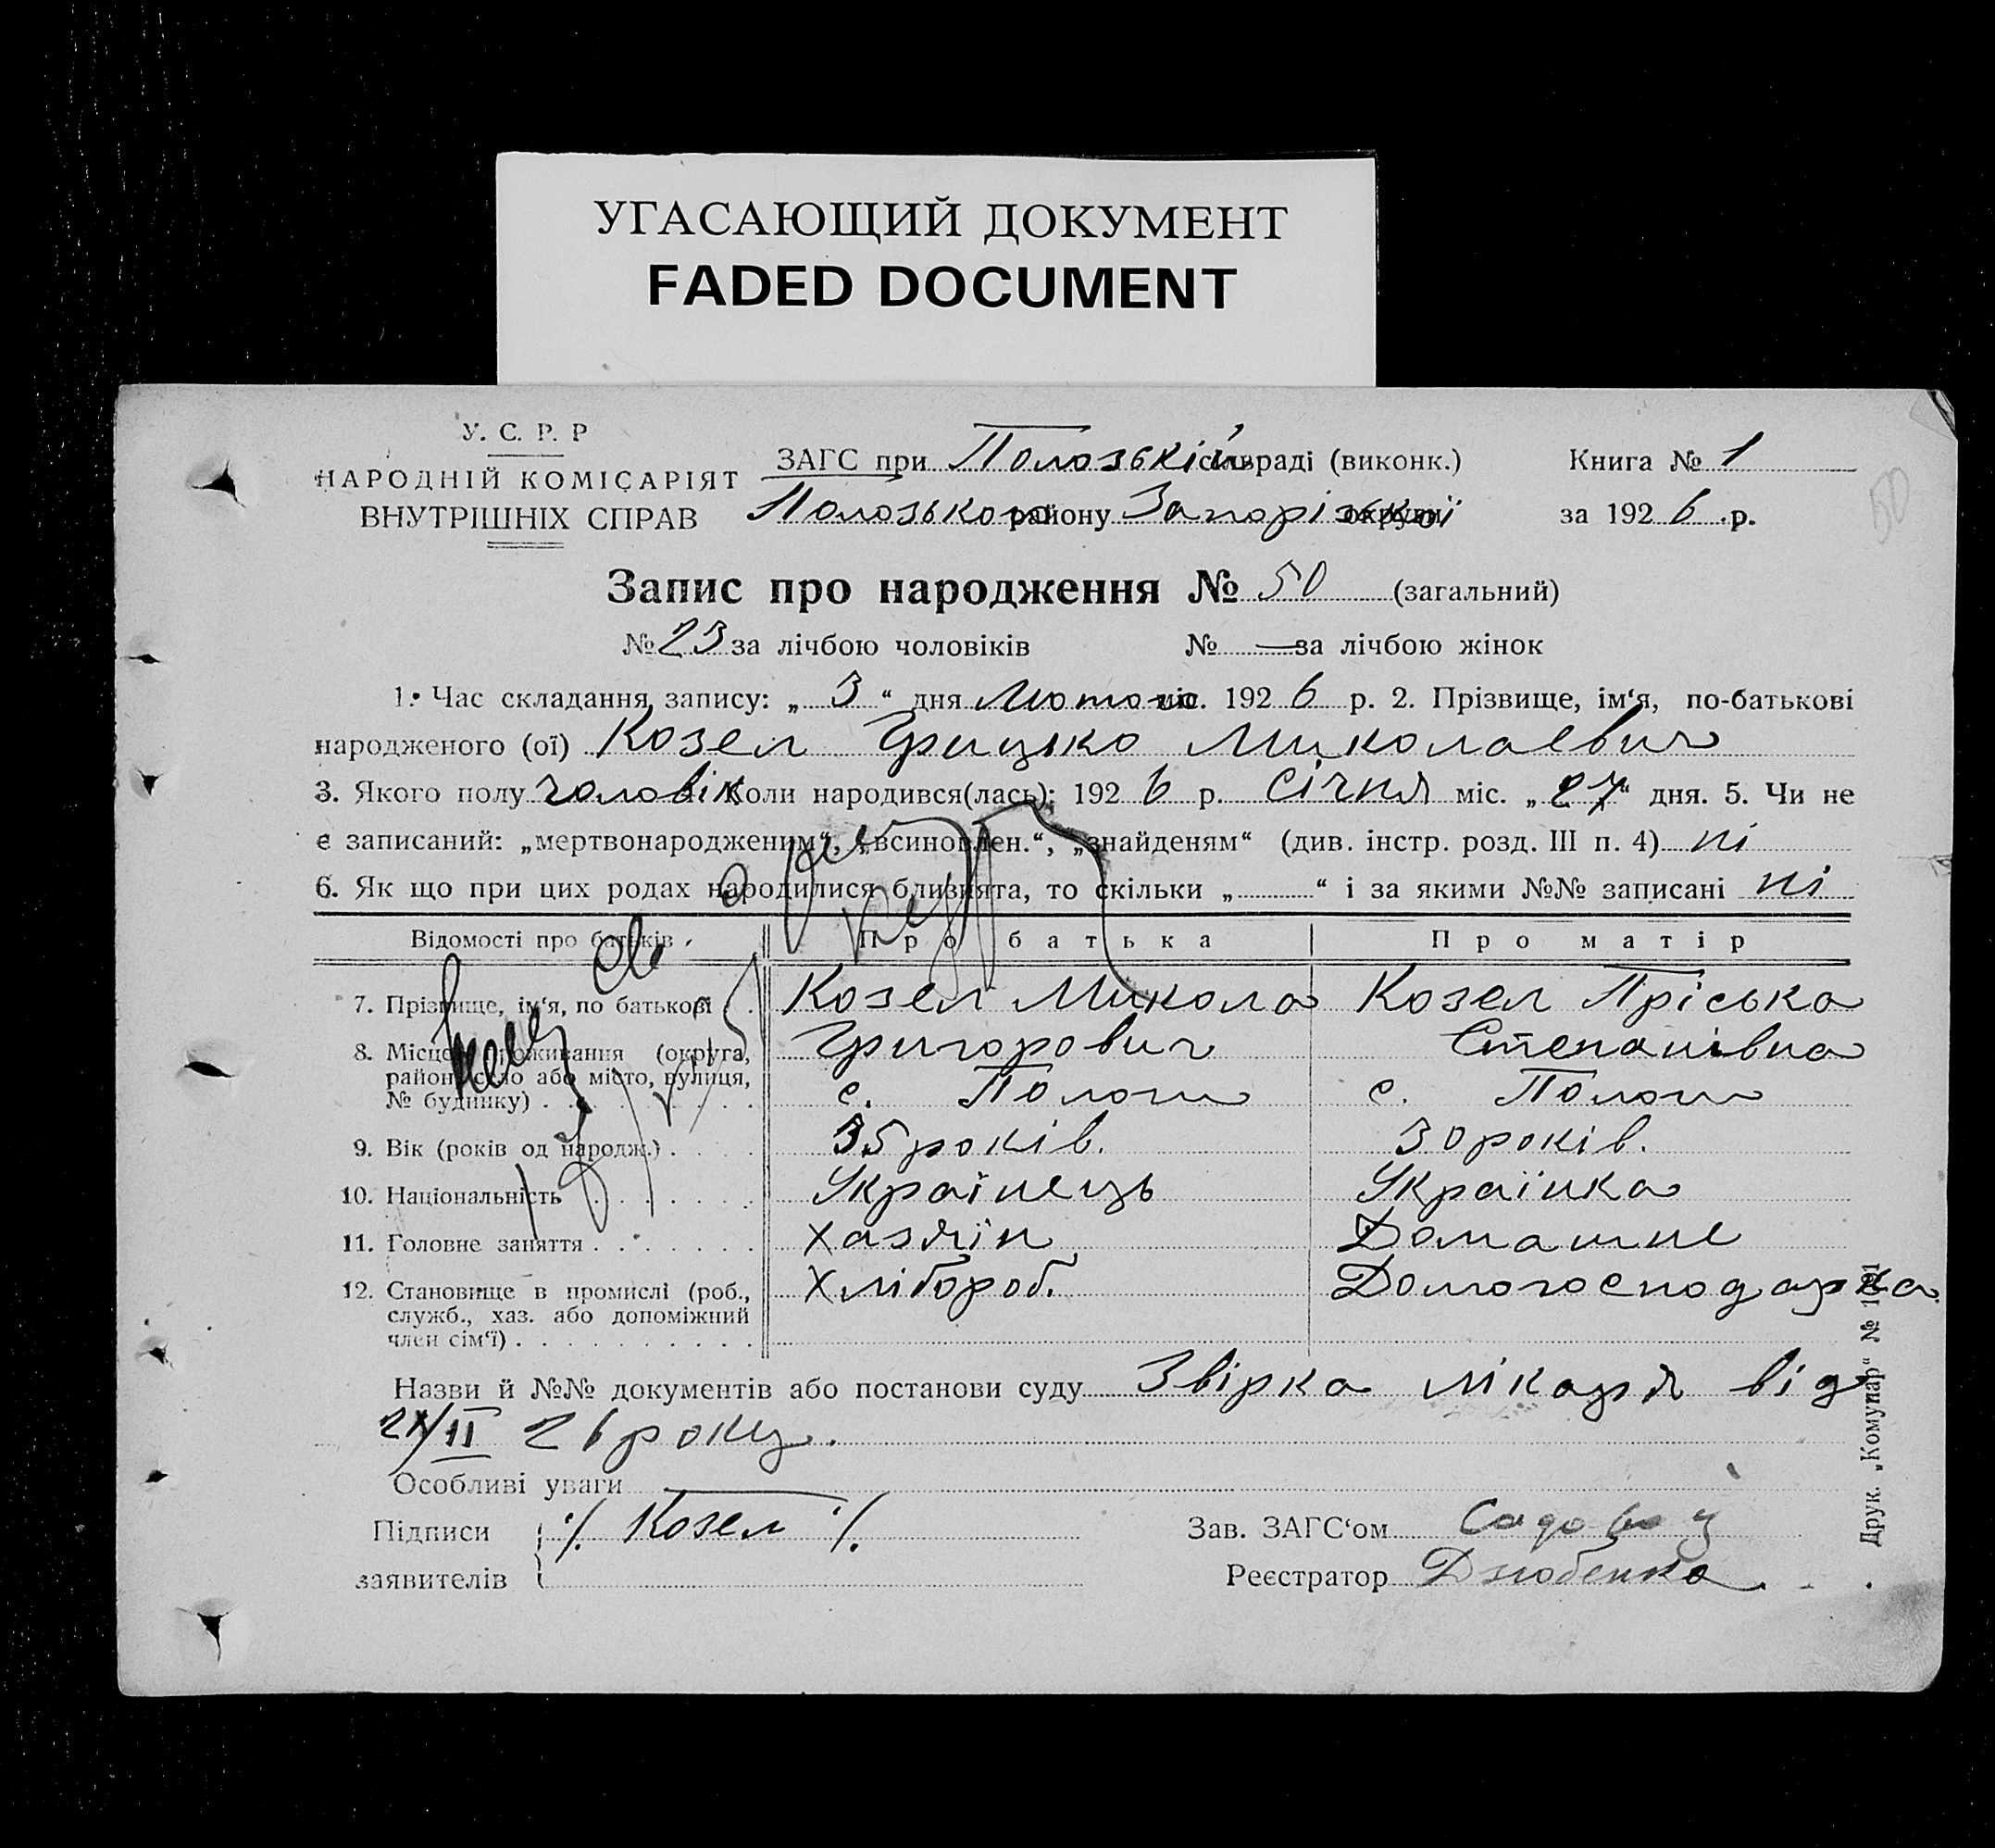 УГАСАЮЩИЙ ДОКУМЕНТ
FADED DOCUMENT
У. С. Р. Р
НАРОДНІЙ КОМІСАРІЯТ
ВНУТРІШНІХ СПРАВ
ЗАГС при Полозькій сільраді (виконк.)
Полозького району Запорізької округи
Книга № 1
за 1926 р.
50
Запис про народження № 50 (загальний)
№ 23 за лічбою чоловіків № — за лічбою жінок
1. Час складання запису: „ 3 “ дня Лютого міс. 1926 р. 2. Прізвище, ім‘я, по-батькові
народженого (ої) Козел Грицько Миколаевич
3. Якого полу чоловік Коли народився(лась): 1926 р. Січня міс. „ 27 “ дня. 5. Чи не
є записаний: „мертвонародженим“, „всиновлен.“, „знайденям“ (див. інстр. розд. III п. 4) ні
6. Як що при цих родах народилися близнята, то скільки „ “ і за якими №№ записані ні
Відомості про батьків Про батька Про матір
7. Прізвище, ім‘я, по батькові Козел Микола Козел Пріська
Григорович Степанівна
8. Місце проживання (округа,
район, село або місто, вулиця,
№ будинку) с. Пологи с. Пологи
9. Вік (років од народж.) 35 років. 30 років.
10. Національність Українець Українка
11. Головне заняття Хазяїн Домашне
12. Становище в промислі (роб.,
служб., хаз. або допоміжний
член сім‘ї) Хлібороб. Домогосподарка
Назви й №№ документів або постанови суду Звірка лікаря від
/II 26 року.
Особливі уваги
Підписи заявителів ./. Козел ./.
Зав. ЗАГС‘ом Садовы
Реєстратор Дзюбенко
Друк. „Комунар“ №